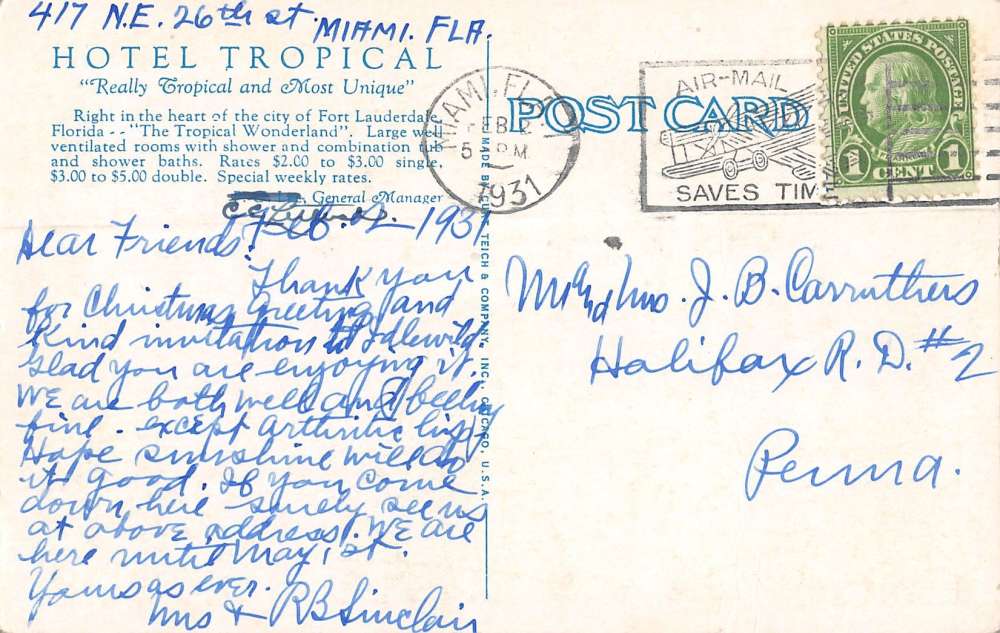 417 N.E. 26th st. MIAMI. FLA.
HOTEL TROPICAL
"Really Tropical and Most Unique"
Right in the heart of the city of Fort Lauderda
Florida - - "The Tropical Wonderland". Large well
ventilated rooms with shower and combination tub
and shower baths. Rates $2.00 to $3.00 single,
$3.00 to $5.00 double. Special weekly rates.
General Manager
Feb. 2 1931
Dear Friends:
Thank you
for Christmas Greeting and
kind invitation to Idlewild.
Glad you are enjoying it.
We are both well and feeling
fine. except arthritic
Hope sunshine will do
it good. If you come
down here surely see us
at above address. We are
here until May 1st.
Yours as ever.
Mrs & RB Sinclair
MADE BY CURT TEICH & COMPANY, INC., CHICAGO, U.S.A.
POST CARD
MIAMI, FLA.
FEB 2
5 PM
1931
AIR-MAIL
SAVES TIM
UNITED STATES POSTAGE
FRANKLIN
1 CENT 1
Mr and Mrs. J. B. Carruthers
Halifax R. D. #2
Penna.